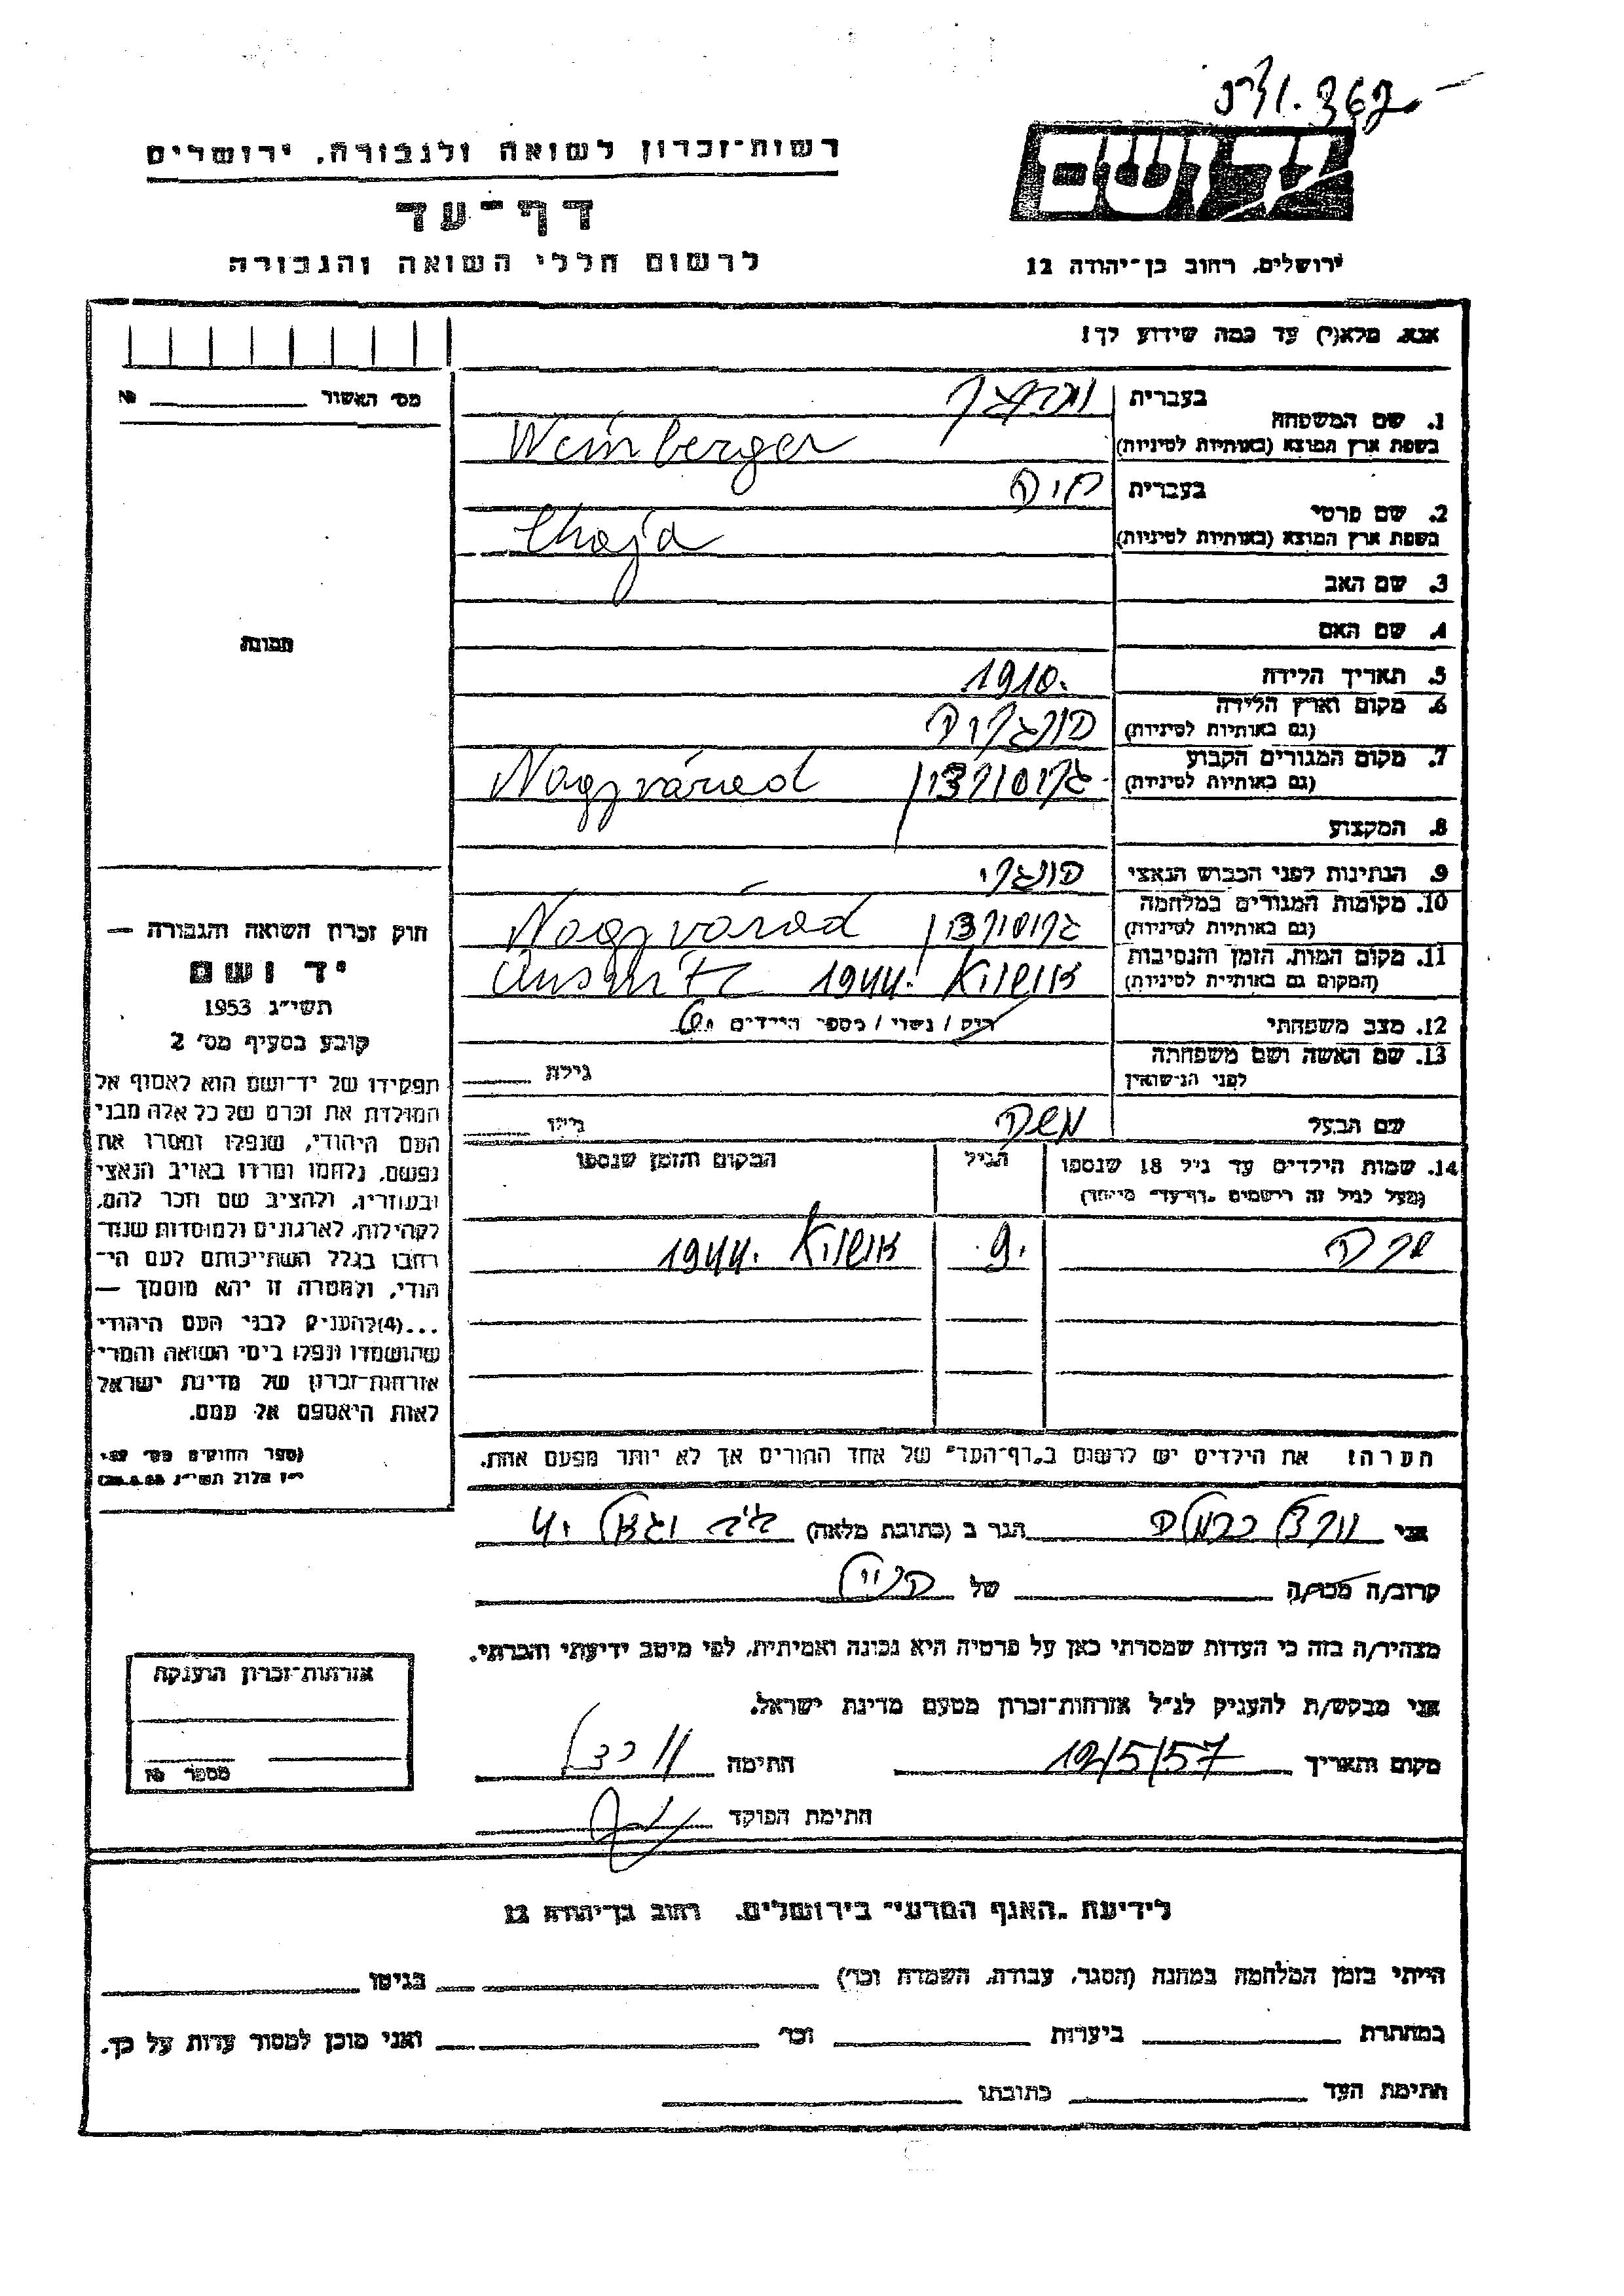 רשות־זכרון לשואה ולגבורה, ירושלים
דף־עד
לרשום חללי השואה והגבורה
ירושלים, רחוב בן־יהודה 12
אנא, מלא(י) עד כמה שידוע לך!
מס' האשור №
1. שם המשפחה
בעברית
בשפת ארץ המוצא (באותיות לטיניות) Weinberger
2. שם פרטי
בעברית חיה
בשפת ארץ המוצא (באותיות לטיניות) Chaja
3. שם האב
4. שם האם
5. תאריך הלידה 1910.
6. מקום וארץ הלידה הונגריה
(גם באותיות לטיניות)
7. מקום המגורים הקבוע Nagyvárad
(גם באותיות לטיניות)
8. המקצוע
9. הנתינות לפני הכבוש הנאצי הונגרי
10. מקומות המגורים במלחמה Nagyvárad
(גם באותיות לטיניות)
11. מקום המות, הזמן והנסיבות אושוויץ 1944.
(המקום גם באותיות לטיניות)
12. מצב משפחתי רווק / נשוי / מספר הילדים
13. שם האשה ושם משפחתה
לפני הנישואין גילה
שם הבעל משה גילו
14. שמות הילדים עד גיל 18 שנספו הגיל המקום והזמן שנספו
(מעל לגיל זה רושמים „דף־עד” מיוחד)
שרה 9. אושוויץ 1944.
הערה: את הילדים יש לרשום ב„דף־העד” של אחד ההורים אך לא יותר מפעם אחת.
תמונה
חוק זכרון השואה והגבורה —
יד ושם
תשי״ג 1953
קובע בסעיף מס' 2
תפקידו של יד־ושם הוא לאסוף אל
המולדת את זכרם של כל אלה מבני
העם היהודי, שנפלו ומסרו את
נפשם, נלחמו ומרדו באויב הנאצי
ובעוזריו, ולהציב שם וזכר להם,
לקהילות, לארגונים ולמוסדות שנח־
רבו בגלל השתייכותם לעם הי־
הודי, ולמטרה זו יהא מוסמך —
...(4) להעניק לבני העם היהודי
שהושמדו ונפלו בימי השואה והמרי
אזרחות־זכרון של מדינת ישראל
לאות היאספם אל עמם.
אני הגר ב (כתובת מלאה)
קרוב/ה מכר/ה של
מצהיר/ה בזה כי העדות שמסרתי כאן על פרטיה היא נכונה ואמיתית, לפי מיטב ידיעתי והכרתי.
אני מבקש/ת להעניק לנ״ל אזרחות־זכרון מטעם מדינת ישראל.
מקום ותאריך 12/5/57 חתימה
חתימת הפוקד
אזרחות־זכרון הוענקה
מספר №
לידיעת „האגף המדעי” בירושלים, רחוב בן־יהודה 12
הייתי בזמן המלחמה במחנה (הסגר, עבודה, השמדה וכו') בגיטו
במחתרת ביערות וכו' ואני מוכן למסור עדות על כך.
חתימת העד כתובתו